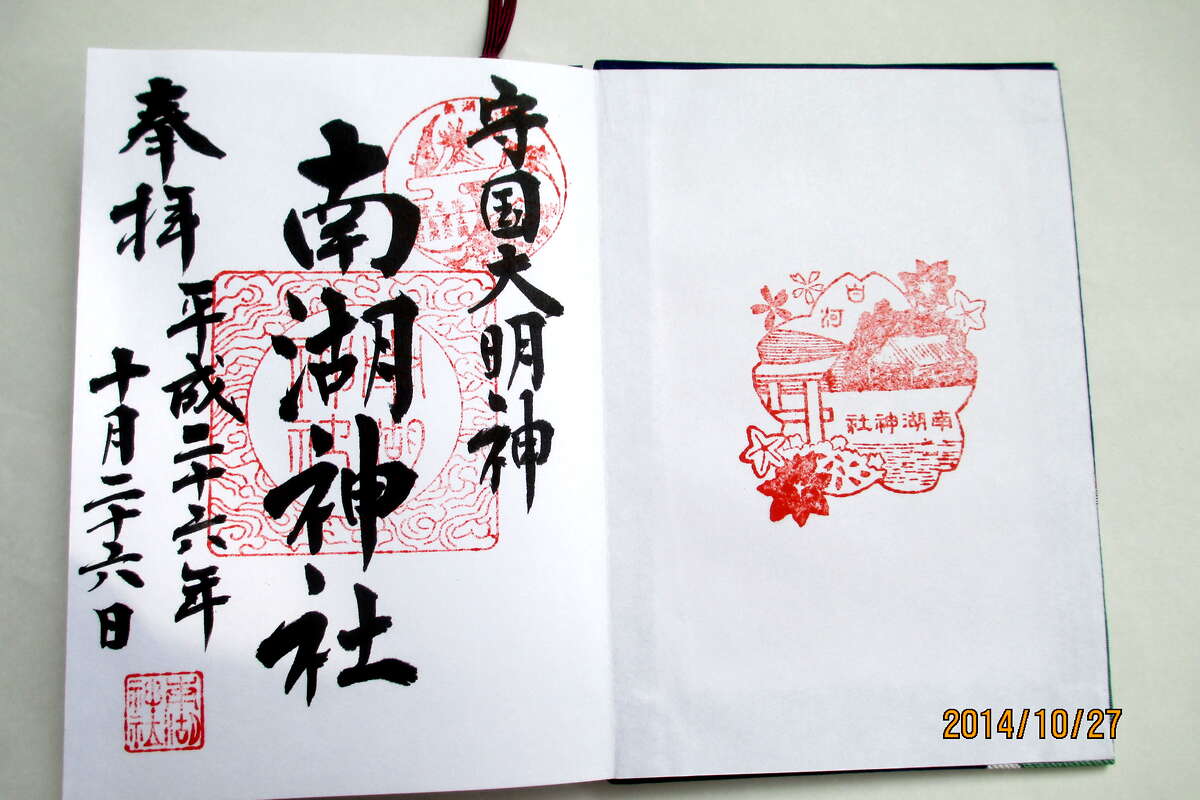 守国大明神
南湖神社
奉拝
平成二十六年
十月二十六日
南湖
神社
白河
南湖神社
2014/10/27